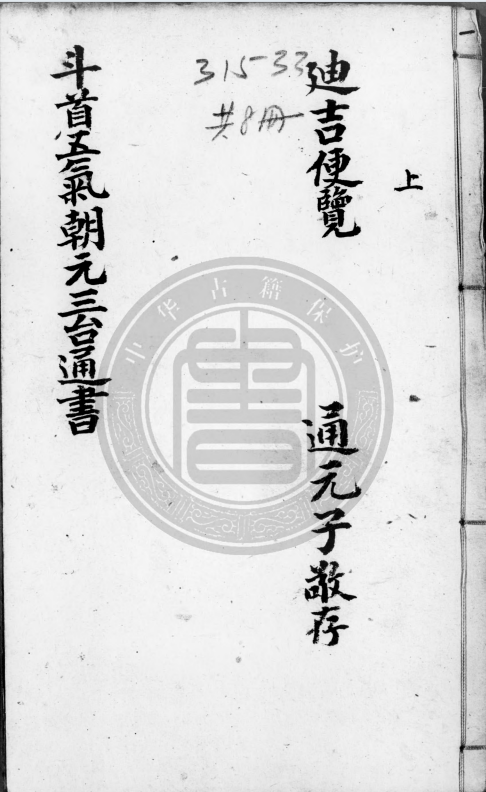 上
廸吉便覽
通元子敬存
31533
共8冊
斗首五氣朝元三台通書
中华古籍保护